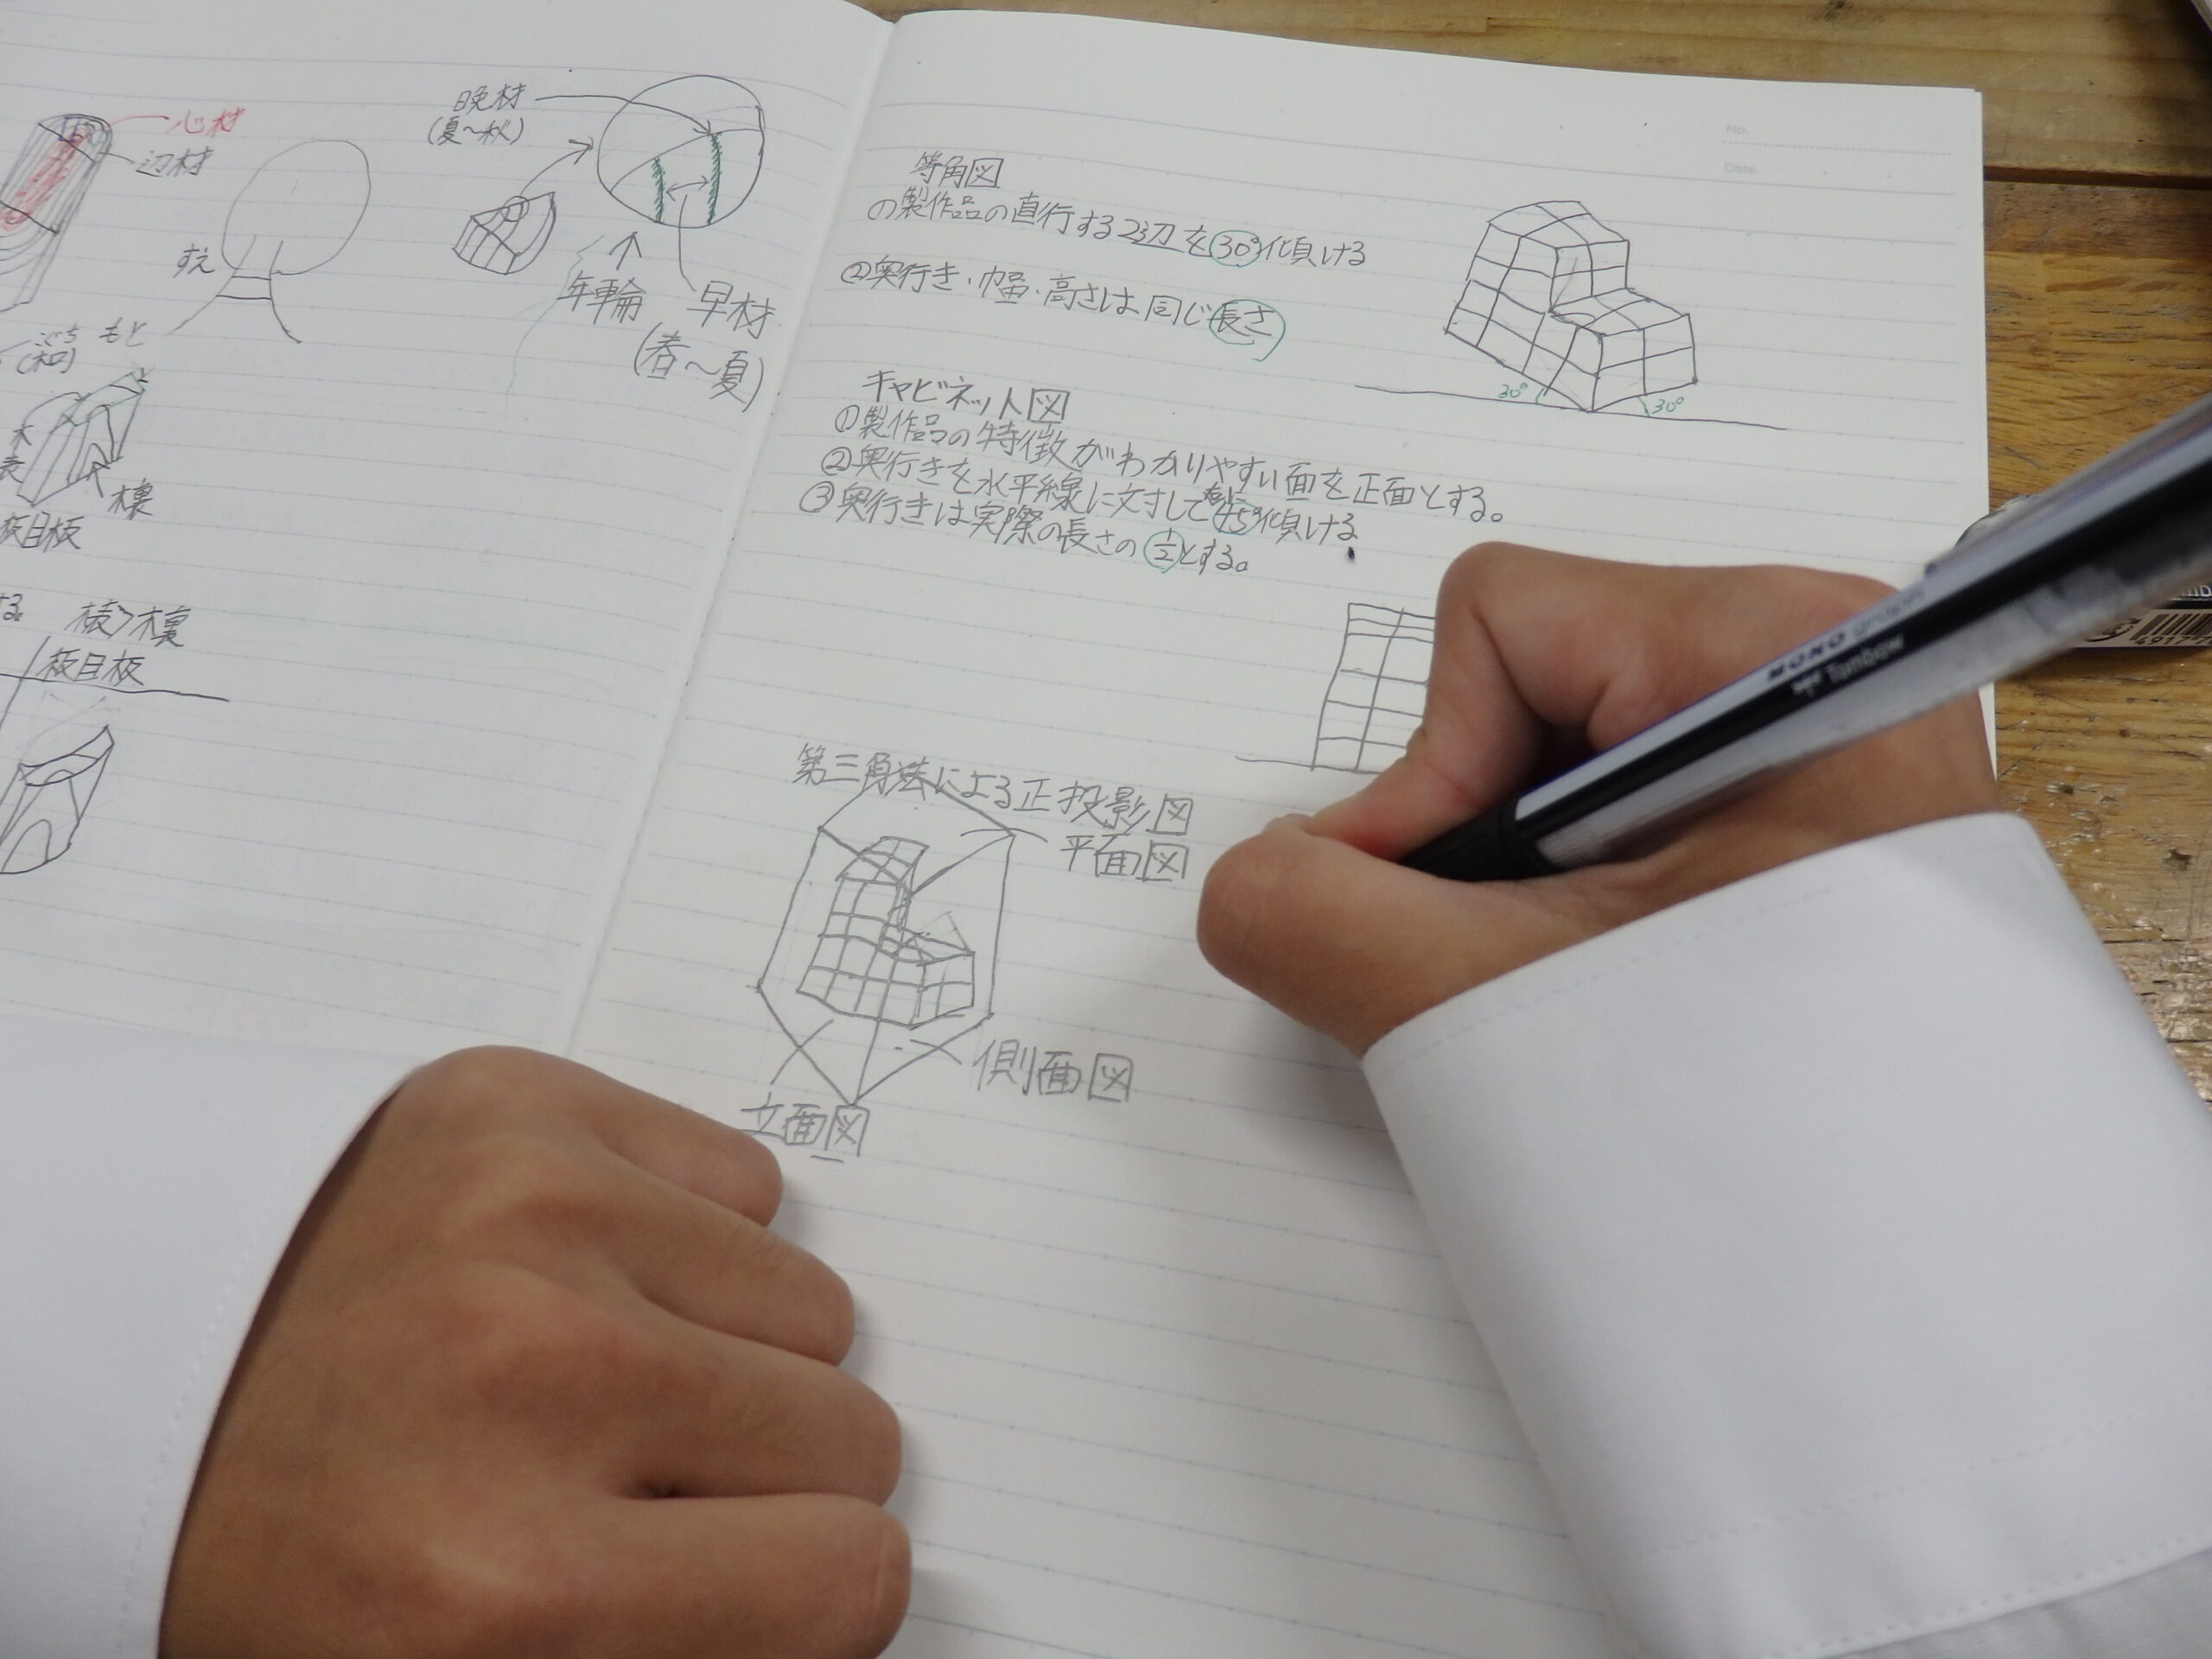 心材
辺材
晩材
(夏～秋)
すえ
もと
年輪
早材
(春～夏)
木裏
板目板
する。
木表>木裏
板目板
No.
Date
等角図
の製作品の直行する2辺を30°傾ける
②奥行き・幅・高さは同じ長さ
30°
30°
キャビネット図
①製作品の特徴がわかりやすい面を正面とする。
②奥行きを水平線に対して45°傾ける
③奥行きは実際の長さの1/2とする。
第三角法による正投影図
平面図
側面図
立面図
MONO graph
Tombow